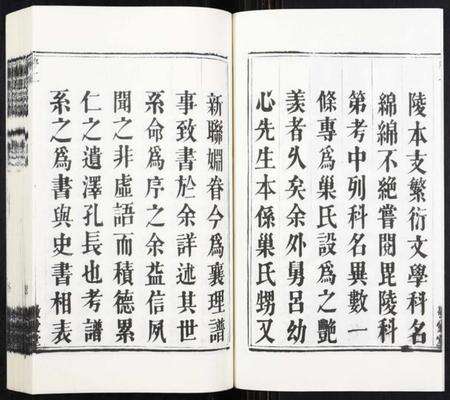 陵本支繁衍文學科名
綿綿不絕嘗閱毘陵科
第考中列科名異數一
條專爲巢氏設爲之艷
羨者久矣余外舅呂幼
心先生本係巢氏甥又
新聯姻眷今爲襄理譜
事致書於余詳述其世
系命爲序之余益信夙
聞之非虛語而積德累
仁之遺澤孔長也考譜
系之爲書與史書相表